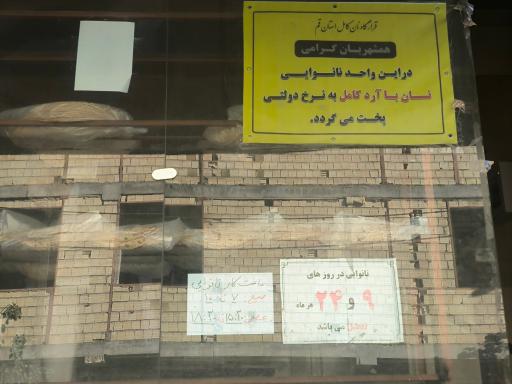 قرارگاه نان کامل استان قم
همشهریان گرامی
در این واحد نانوایی
نان با آرد کامل به نرخ دولتی
پخت می گردد.
نانوایی در روز های
۹ و ۲۴ هر ماه
می باشد
ساعت کار نانوایی
صبح
عصر ۱۵:۳۰